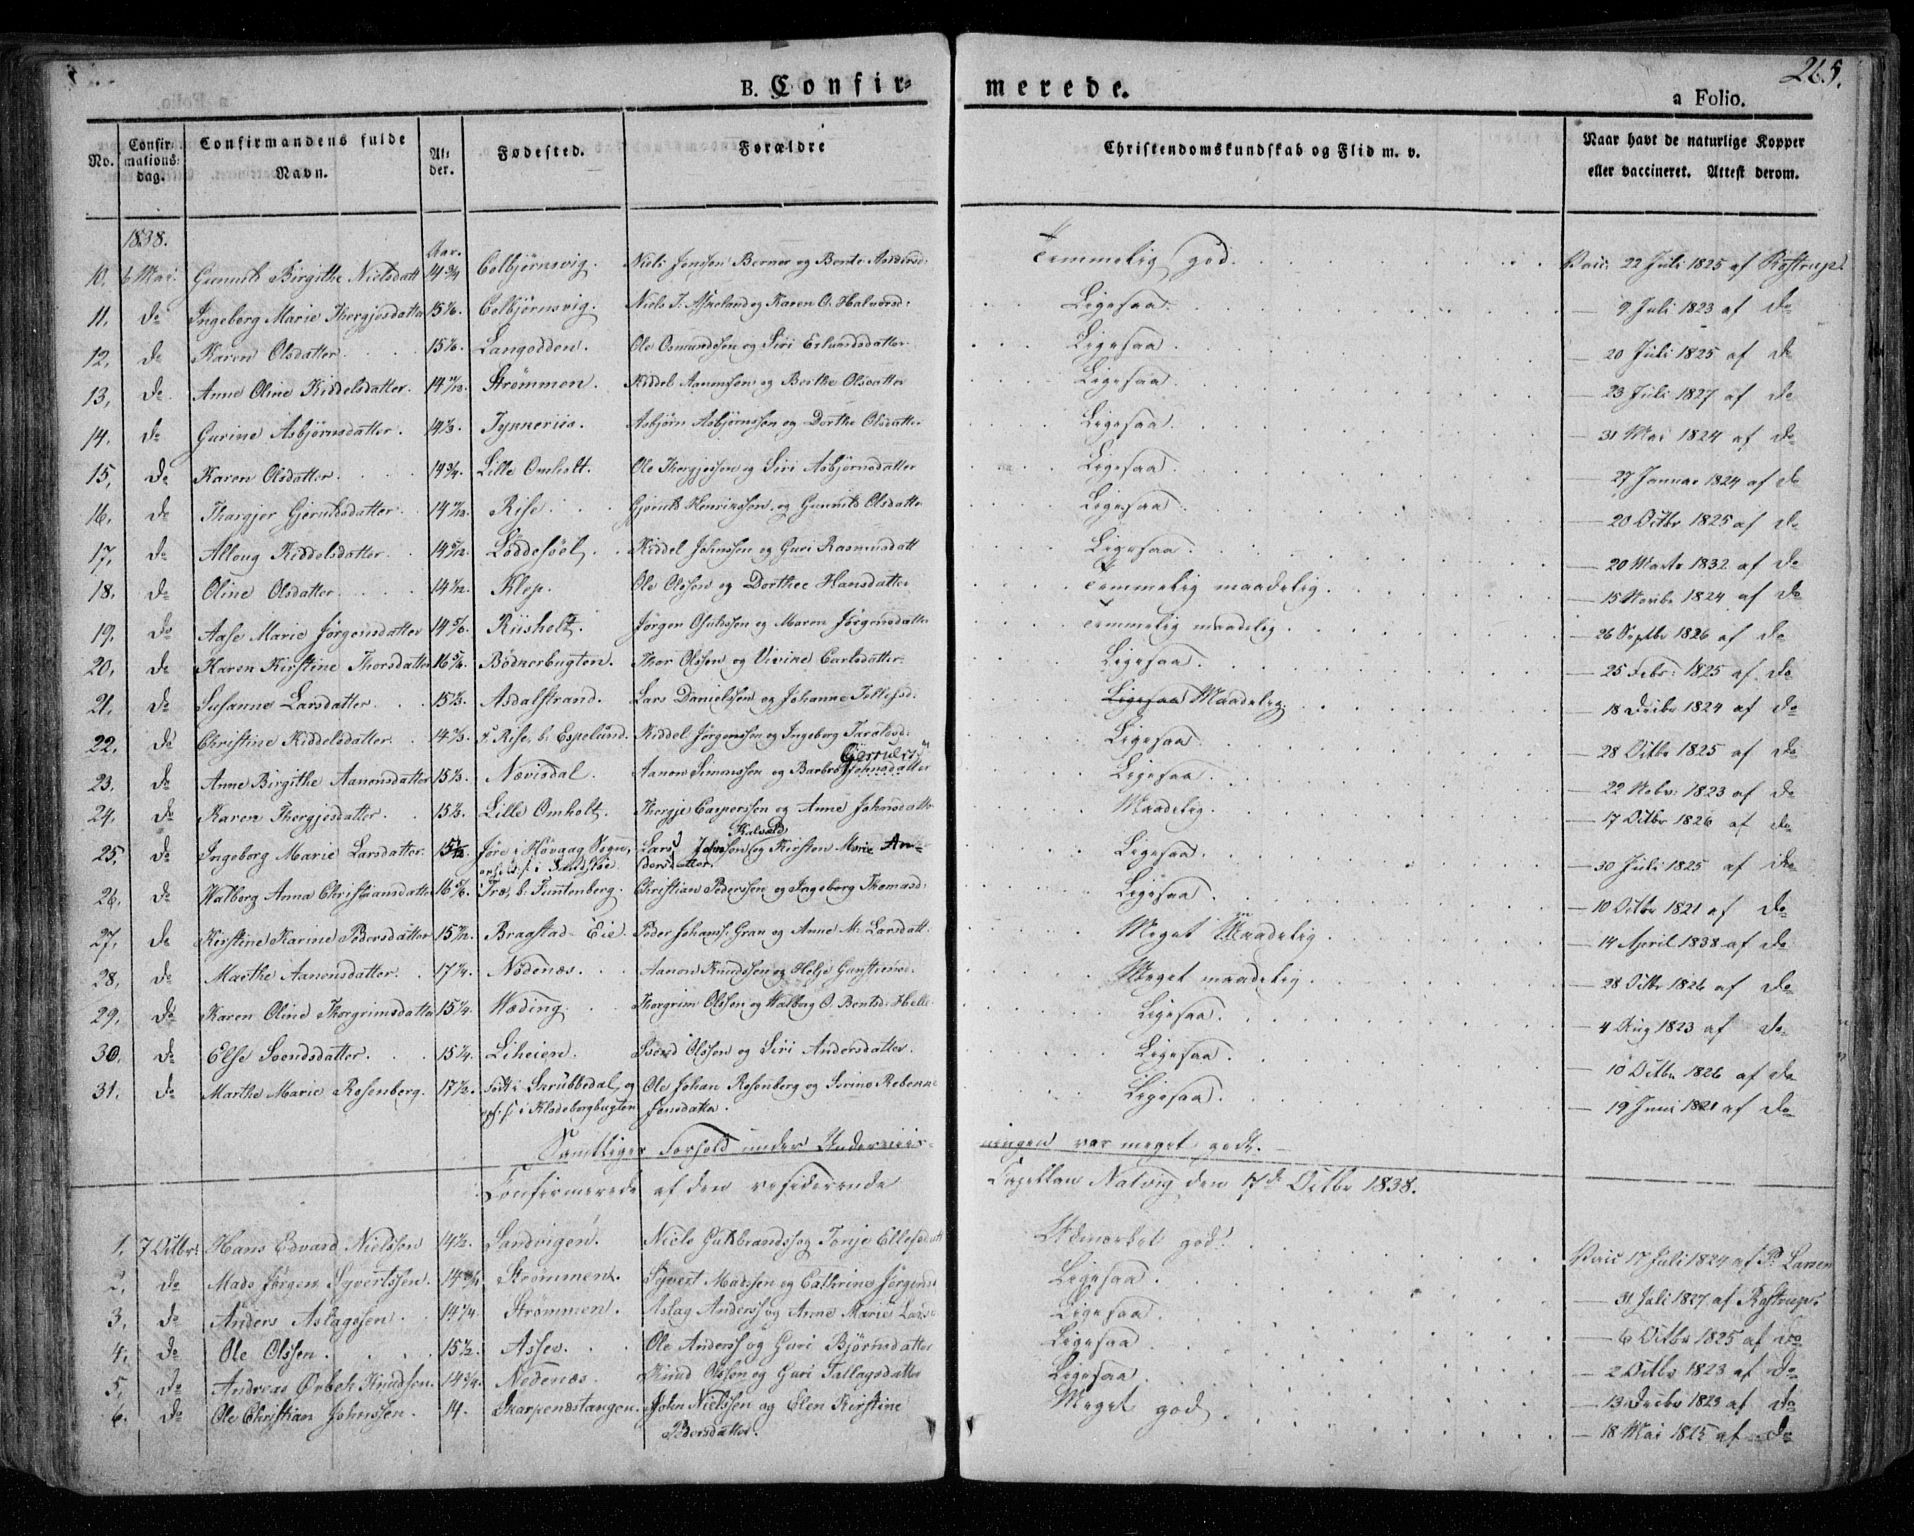 265.
B. Confir-
merede.
a Folio.
No.
Confir-
mations-
dag.
Confirmandens fulde
Navn.
Al-
der.
Fødested.
Forældre
Christendomskundskab og Flid m. v.
Naar havt de naturlige Kopper
eller vaccineret. Attest derom.
1838.
Aar.
10. 6 Mai. Gunnild Birgithe Nielsdatt 14 3/4 Colbjørnsvig. Niels Jensen Berner og Bente Temmelig god. Vacc. 22 Juli 1825 af Rostrup.
11, do Ingeborg Marie Thergjesdatter Colbjørnsvig. Niels T. og Karen O. Halvorsd: Ligesaa. — 9 Juli 1823 af do
12, do Karen Olsdatter. Langodden. Ole Osmundssen og Siri Ligesaa. — 20 Juli 1825 af do
13, do Anne Oline Kiddelsdatter. Strømmen. Kiddel Aanonsen og Berthe Olsdatter Ligesaa. — 23 Juli 1827 af do
14, do Gurine Asbjørnsdatter. 14 1/3. Asbjørn Asbjørnssen og Dorthe Olsdatter Ligesaa. — 31 Mai 1824 af do
15, do Karen Olsdatter 14 3/4. Lille Omholt. Ole Thergjessen og Siri Asbjørnsdatter Ligesaa. — 27 Januar 1824 af do
16, do Thargjer Gjeruldsdatter. Rise. Henrikssen og Gunnild Olsdatter Ligesaa. — 20 Octbr 1825 af do
17, do Alloug Kiddelsdatter. 14 5/12. Løddesøel. Kiddel Johnssen og Guri Rasmusdatt Ligesaa. — 20 Marts 1832 af do
18, do Oline Olsdatter. Klep. Ole Olssen og Dorthee Hansdatter Temmelig maadelig. — 15 Novbr 1824 af do
19, do Aase Marie Jørgensdatter 14 5/6. Riisholt. Jørgen og Maren Jørgensdatter Temmelig maadelig. — 26 Septbr 1826 af do
20, do Karen Kirstine Thorsdatter 16 5/6. Bødnerbugten. Thor Olssen og Vivine Carlsdatter. Ligesaa. — 25 Febr: 1825 af do
21, do Susanne Larsdatter. 15 1/3. Asdalstrand. Lars Danielssen og Johanne Tellefsd: Ligesaa Maadelig. — 18 Decbr 1824 af do
22, do Christine Kiddelsdatter. f. Rise, b. Espelund. Kiddel Jørgenssen og Ingeborg Taraldsd: Ligesaa. — 28 Octbr 1825 af do
23, do Anne Birgithe Aanonsdatter 15 1/3. Nævisdal. Aanon Simonssen og Barbro Johnsdatter Ligesaa. — 22 Nobv: 1823 af do
24, do Karen Thergjesdatter. 15 1/3. Lille Omholt. Thergje Casperssen og Anne Johnsdatter Maadelig. — 17 Octbr 1826 af do
25, do Ingeborg Marie Larsdatter. i Høvaag Sogn, Lars Johnssen og Kirsten Marie An- Ligesaa. — 30 Juli 1825 af do
dersdatter.
26, do Walborg Anna Christiansdatter 16 5/6. Træ, b. Tuntenberg. Christian Pederssen og Ingeborg Thomasd: Ligesaa. — 10 Octbr 1821 af do
27, do Kirstine Karine Pedersdatter Bragstad-Eie. Peder Johans. Gran og Anne M. Larsdatt. Meget Maadelig. — 14 April 1838 af do
28, do Marthe Aanonsdatter. 17 1/4. Nedenæs. Aanon Knudssen og Helje Meget maadelig. — 28 Octbr 1826 af do
29, do Karen Oline Thorgrimsdatter 15 1/4. Wæding. Thorgrim Olssen og Walborg O. Bentsd: Ligesaa. — 4 Aug 1823 af do
30, do Else Svendsdatter. 15 1/4. Liheien. Svend Olssen og Siri Andersdatter. Ligesaa. — 10 Octbr 1826 af do
31, do Marthe Marie Rosenberg. 17 1/2. Født i Skrubbedal, og Ole Johan Rosenberg og Serine Rebekka Ligesaa. — 19 Juni 1821 af do
opf. i Kladeborgbugten Jensdatter.
Samtliges Forhold under Underviis- ningen var meget godt.
Confirmerede af den residerende Capellan Natvig den 7de Octbr 1838.
1. 7 Octbr: Hans Edvard Nielssen 14 1/2. Sandvigen. Niels Guldbrandss og Torje Ellefsdatt Udmærket god. Vacc 17 Juli 1824 af P. Larsen
2. do Mads Jørgen Syvertssen. Strømmen. Syvert Madssen og Cathrine Jørgensd Ligesaa. — 31 Juli 1827 af Rostrup
3. do Anders Aslagssen. 14 1/4. Strømmen. Aslag Anderss og Anne Marie Larsd Ligesaa. — 6 Octbr 1825 af do
4. do Ole Olssen. 15 1/2. Assev. Ole Anderss og Guri Bjørnsdatter Ligesaa — 2 Octbr 1823 af do
5. do Andreas Ørbek Knudsen. 14 3/4. Nedenæs. Knud Olssen og Guri Tallagsdatter Ligesaa. — 13 Decbr 1823 af do
6. do Ole Christian Johnssen. 14. Skarpenæstangen. John Nielssen og Elen Kirstine Meget god. — 18 Mai 1825 af do
Pedersdatter.